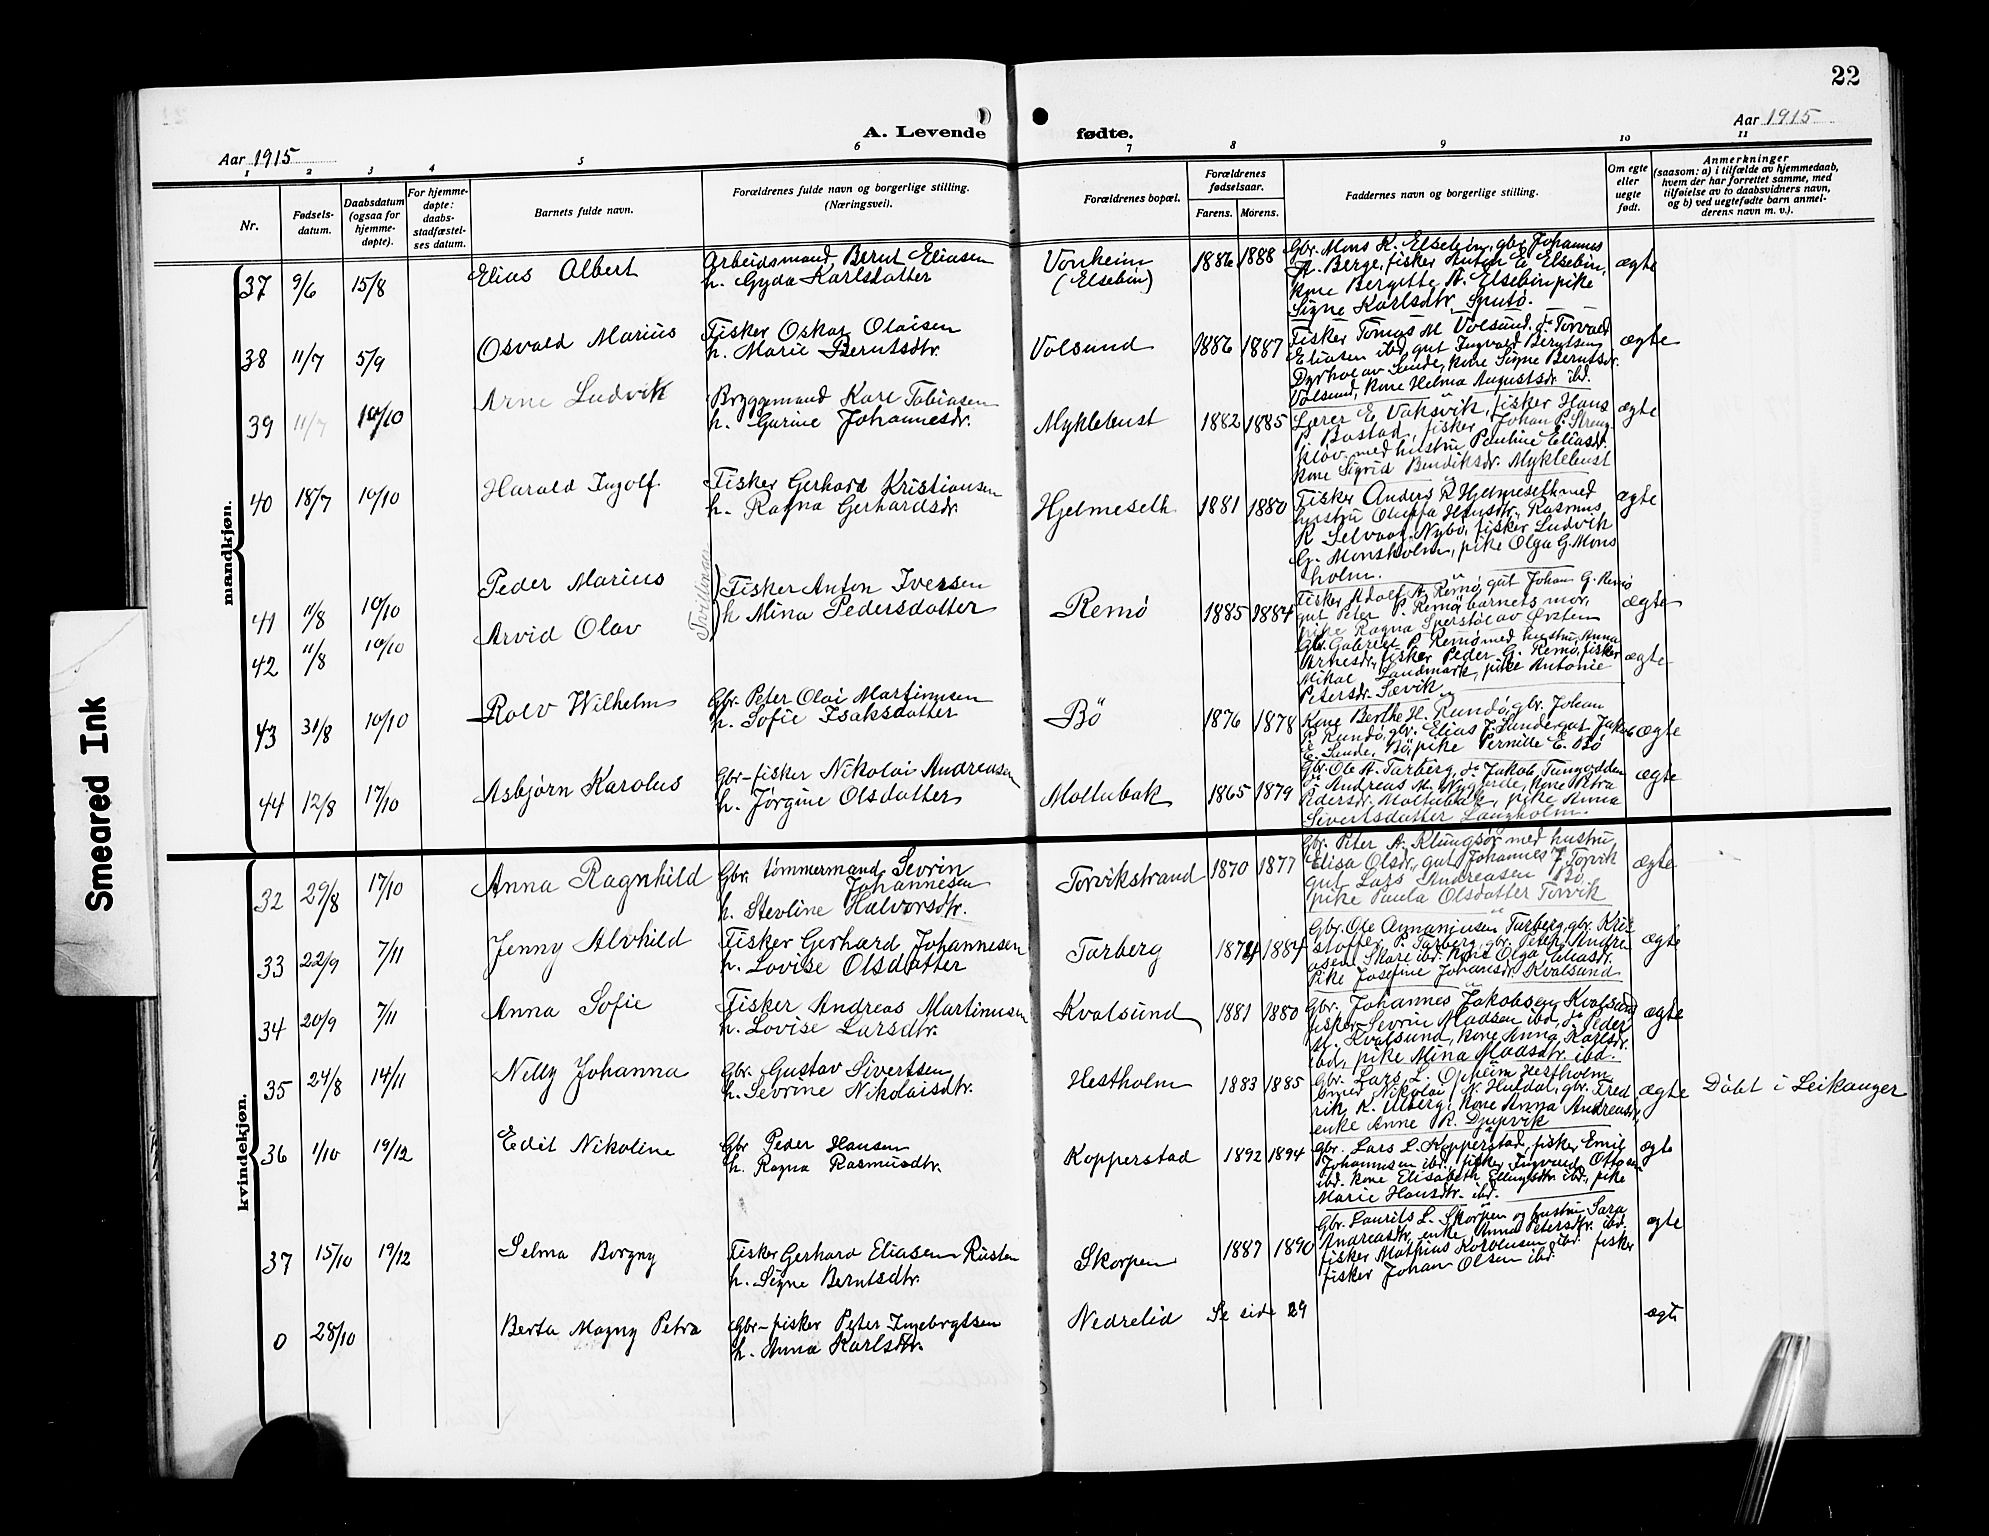 22
A. Levende fødte.
Aar 1915
Aar 1915
1 2 3 4 5 6 7 8 9 10 11
Nr.
Fødsels-
datum.
Daabsdatum
(ogsaa for
hjemme-
døpte).
For hjemme-
døpte:
daabs-
stadfæstel-
ses datum.
Barnets fulde navn.
Forældrenes fulde navn og borgerlige stilling.
(Næringsvei).
Forældrenes bopæl.
Forældrenes
fødselsaar.
Farens. Morens.
Faddernes navn og borgerlige stilling.
Om egte
eller
uegte
født.
Anmerkninger
(saasom: a) i tilfælde av hjemmedaab,
hvem der har forrettet samme, med
tilføielse av to daabsvidners navn,
og b) ved uegtefødte barn anmel-
derens navn m. v.).
mandkjøn.
37 9/6 15/8 Elias Albert
Arbeidsmand Bernt Eliasen
h. Gyda Karlsdatter
Vonheim
(Elsebøn)
1886 1888
Gbr. Mons K. Elsebøn, gbr Johannes
A. Berge, fisker Anton E. Elsebøn,
kone Bergitte A. Elsebøn pike
Signe Karlsdtr,
ægte
38 11/7 5/9 Osvald Marius
Fisker Oskar Olaisen
h. Marie Berntsdtr.
Volsund 1886 1887
Fisker Tomas M Volsund, do Torvald
Eliasen ibd, gut Ingvald Berntsen
Dyrhol av Sande, kone Signe Berntsdr.
Volsund, kone Helma Augustsdr ibd.
ægte
39 11/7 10/10 Arne Ludvik
Bryggemand Karl Tobiasen
h. Gurine Johannesdr.
Myklebust 1882 1885
Lærer E. Vaksvik, fisker Hans
P. Bostad, fisker Johan P.
plav med hustru Pauline Eliasdr.
kone Sigrid Bendiksdr. Myklebust
ægte
40 18/7 10/10 Harald Ingolf.
Fisker Gerhard Kristiansen
h. Ragna Gerhardsdr.
Hjelmeseth 1881 1880
Fisker Anders R Hjelmeseth med
hustru Olufta Hansdtr, Rasmus
K Selvaag, Nybø, fisker Ludvik
G. Monsholm, pike Olga G. Mons
holm.
ægte
41 11/8 10/10 Peder Marius
42 11/8 10/10 Arvid Olav
Tvillinger
Fisker Anton Iversen
h Mina Pedersdatter
Remø 1885 1884
Fisker Adolf A. Remø, gut Johan G. Remø
gut Peter P. Remø, barnets mor,
pike Ragna Sperstøl av Ørsten
ægte
Gbr. Gabriel P. Remø med hustru Anna
Arnesdr, fisker Peder G. Remø, fisker
Mikal Landmark, pike Antonie
Petersdr. Sævik
ægte
43 31/8 10/10 Rolv Wilhelm
Gbr. Peter Olai Martinusen
h. Sofie Isaksdatter
Bö 1876 1878
Kone Berthe H. Rundø, gbr. Johan
P. Rundø, gbr. Elias J. Sande gut Jakob
E. Sande, Bö, pike Pernille E. Bø
ægte
44 12/8 17/10 Asbjørn Karolus
Gbr-fisker Nikolai Andreasen
h. Jørgine Olsdatter
Moltubak 1865 1879
Gbr. Ole A. Tarberg, do Jakob Tungodden
do Andreas M. Nygjerde, kone Petra
Pedersdr. Moltubak, pike Anna
Sivertsdatter Langholm.
ægte
kvindekjøn.
32 29/8 17/10 Anna Ragnhild
Gbr. tømmermand Sevrin
Johannesen
h. Stevline Halvorsdtr.
Torvikstrand 1870 1877
Gbr. Peter A. Klungsør med hustru
Elisa Olsdr., gut Johannes J Torvik
gut Lars Andreasen Bø,
pike Paula Olsdatter Torvik
ægte
33 22/9 7/11 Jenny Alvhild
Fisker Gerhard Johannesen
h. Lovise Olsdatter
Tarberg 1874 1884
Gbr. Ole Tarberg, gbr. Kri-
stoffer P. Tarberg, gbr. Peter Andre
asen Skare ibd. kone Olga Eliasdr.
Pike Josefine Johansdr. Kvalsund
ægte
34 20/9 7/11 Anna Sofie
Fisker Andreas Martinusen
h. Lovise Larsdtr.
Kvalsund 1881 1880
Gbr. Johannes Jakobsen Kvalsund
fisker Sevrin Madsen ibd, do Peder
M. Kvalsund, kone Anna Karlsdr.
ibd, pike Mina Madsdtr. ibd.
ægte
35 24/8 14/11 Nelly Johanna
Gbr. Gustav Sivertsen
h. Sevrine Nikolaisdtr.
Hestholm 1883 1885
Gbr. Lars L. Opheim Hestholm
Nikolai N. Huldal, gbr. Fred
rik K. Ulberg, kone Anna Andreasdr,
enke Anne R. Djupvik
ægte Døbt i Leikanger
36 1/10 19/12 Edit Nikoline
Gbr Peder Hansen
h. Ragna Rasmusdtr.
Kopperstad 1892 1894
Gbr. Lars L. Kopperstad, fisker Emil
Johannesen ibd., fisker Ingvald Ottosen
ibd. kone Elisabeth Ellingsdtr ibd., pike
Marie Hansdtr. ibd.
ægte
37 15/10 19/12 Selma Borgny
Fisker Gerhard Eliasen Rusten
h. Signe Berntsdtr.
Skorpen 1887 1890
Gbr. Laurits L. Skorpen og hustru Sara
Andreasdtr, enke Anna Petersdtr. ibd.
fisker Mathias Karolusen ibd. fisker
fisker Johan Olsen ibd.
ægte
0 28/10 Berta Magny Petra
Gbr-fisker Peter Ingebrigtsen
h. Anna Karlsdtr.
Nedrelid Se side 29
ægte
Smeared Ink